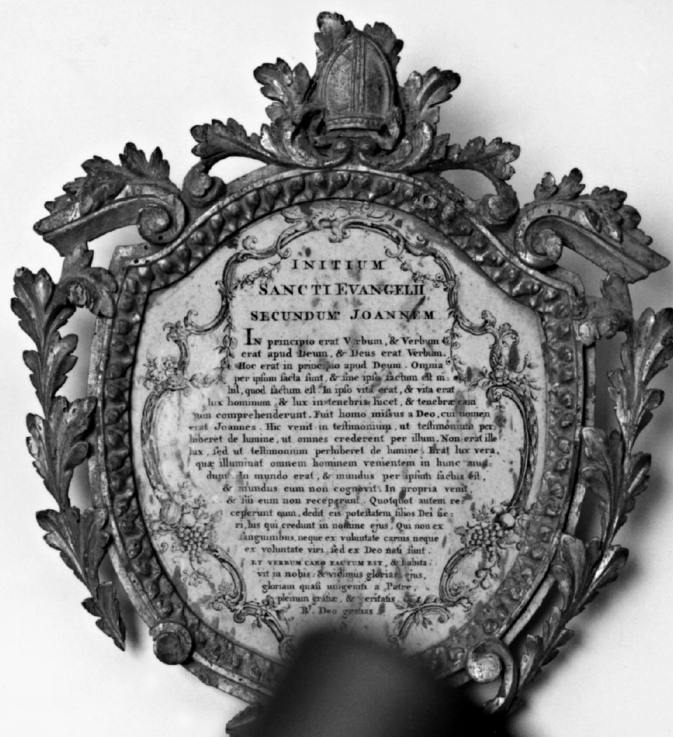 INITIUM
SANCTI EVANGELII
SECUNDUM JOANNEM
IN principio erat Verbum, & Verbum
erat apud Deum, & Deus erat Verbum.
Hoc erat in principio apud Deum. Omnia
per ipsum facta sunt, & sine ipso factum est ni:
hil, quod factum est. In ipso vita erat, & vita erat
lux hominum, & lux in tenebris lucet, & tenebræ eam
non comprehenderunt. Fuit homo missus a Deo, cui nomen
erat Joannes. Hic venit in testimonium, ut testimonium per
hiberet de lumine, ut omnes crederent per illum. Non erat ille
lux, sed ut testimonium perhiberet de lumine. Erat lux vera,
quæ illuminat omnem hominem venientem in hunc mun
dum. In mundo erat, & mundus per ipsum factus est,
& mundus eum non cognovit. In propria venit,
& sui eum non receperunt. Quotquot autem re
ceperunt eum, dedit eis potestatem filios Dei fie:
ri, his qui credunt in nomine ejus. Qui non ex
sanguinibus, neque ex voluntate carnis neque
ex voluntate viri, sed ex Deo nati sunt.
ET VERBUM CARO FACTUM EST, & habita:
vit in nobis: & vidimus gloriam ejus,
gloriam quasi unigeniti a Patre,
plenum gratiæ, & veritatis.
R. Deo gratias